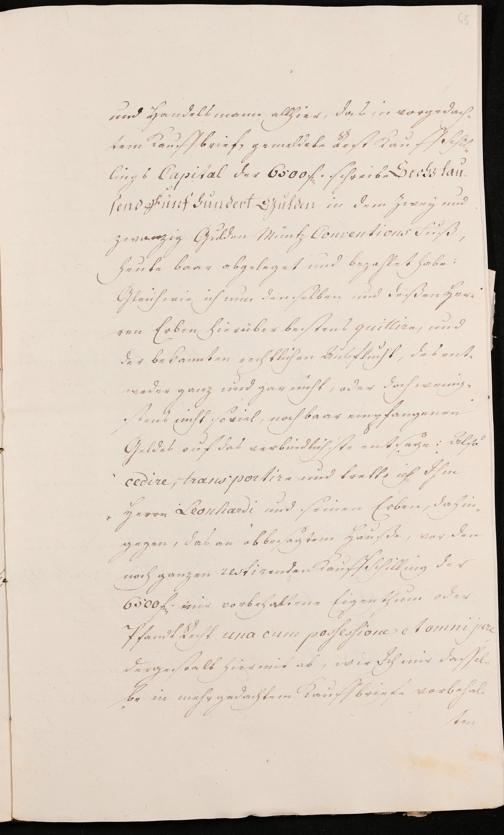 63
und Handelsmann allhier, das in vorgedach-
tem Kauffbrief, gemeldete Rest Kauffschil-
lings Capital der 6500 f. schreibe Sechs tau-
send Fünf hundert Gulden in dem zwey und
zwanzig Gulden Müntz Conventions Fuß,
heute baar abgeleget und bezahlet habe:
Gleichwie ich nun denselben und deßen Her-
ren Erben hierüber bestens quittire, und
der bekannten rechtlichen Ausflucht, des ent-
weder ganz und gar nicht, oder doch wenig-
stens nicht soviel, noch baar empfangenen
Geldes auf das verbindlichste entsage: Also
cedire, transportire und trette ich Ihm
Herrn Leonhardi und seinen Erben, dahin-
gegen, das an obbesagtem Hauße, vor den
noch ganzen restirenden Kauffschilling der
6500 f. mir vorbehaltene Eigenthum oder
Pfandtrecht una cum possessione et omni jure
dergestalt hiermit ab, wie Ich mir dassel-
be in mehrgedachtem Kauffbriefe vorbehal-
ten